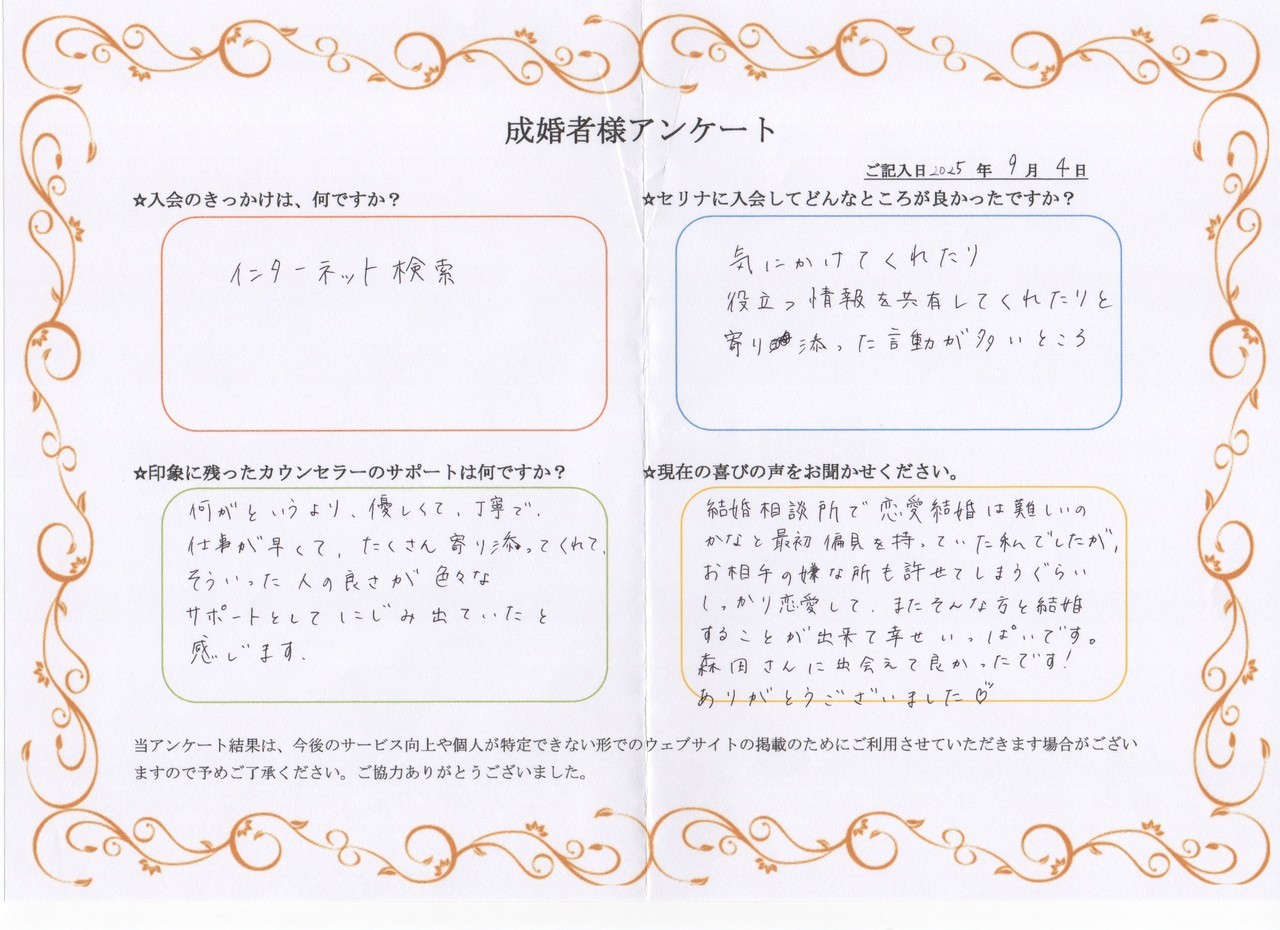 成婚者様アンケート
ご記入日2025年9月4日
☆入会のきっかけは、何ですか？
インターネット検索
☆セリナに入会してどんなところが良かったですか？
気にかけてくれたり
役立つ情報を共有してくれたりと
寄り添った言動が多いところ
☆印象に残ったカウンセラーのサポートは何ですか？
何がというより、優しくて、丁寧で、
仕事が早くて、たくさん寄り添ってくれて、
そういった人の良さが色々な
サポートとしてにじみ出ていたと
感じます。
☆現在の喜びの声をお聞かせください。
結婚相談所で恋愛結婚は難しいの
かなと最初偏見を持っていた私でしたが、
お相手の嫌な所も許せてしまうぐらい
しっかり恋愛して、またそんな方と結婚
することが出来て幸せいっぱいです。
森田さんに出会えて良かったです！
ありがとうございました♡
当アンケート結果は、今後のサービス向上や個人が特定できない形でのウェブサイトの掲載のためにご利用させていただきます場合がござい
ますので予めご了承ください。ご協力ありがとうございました。